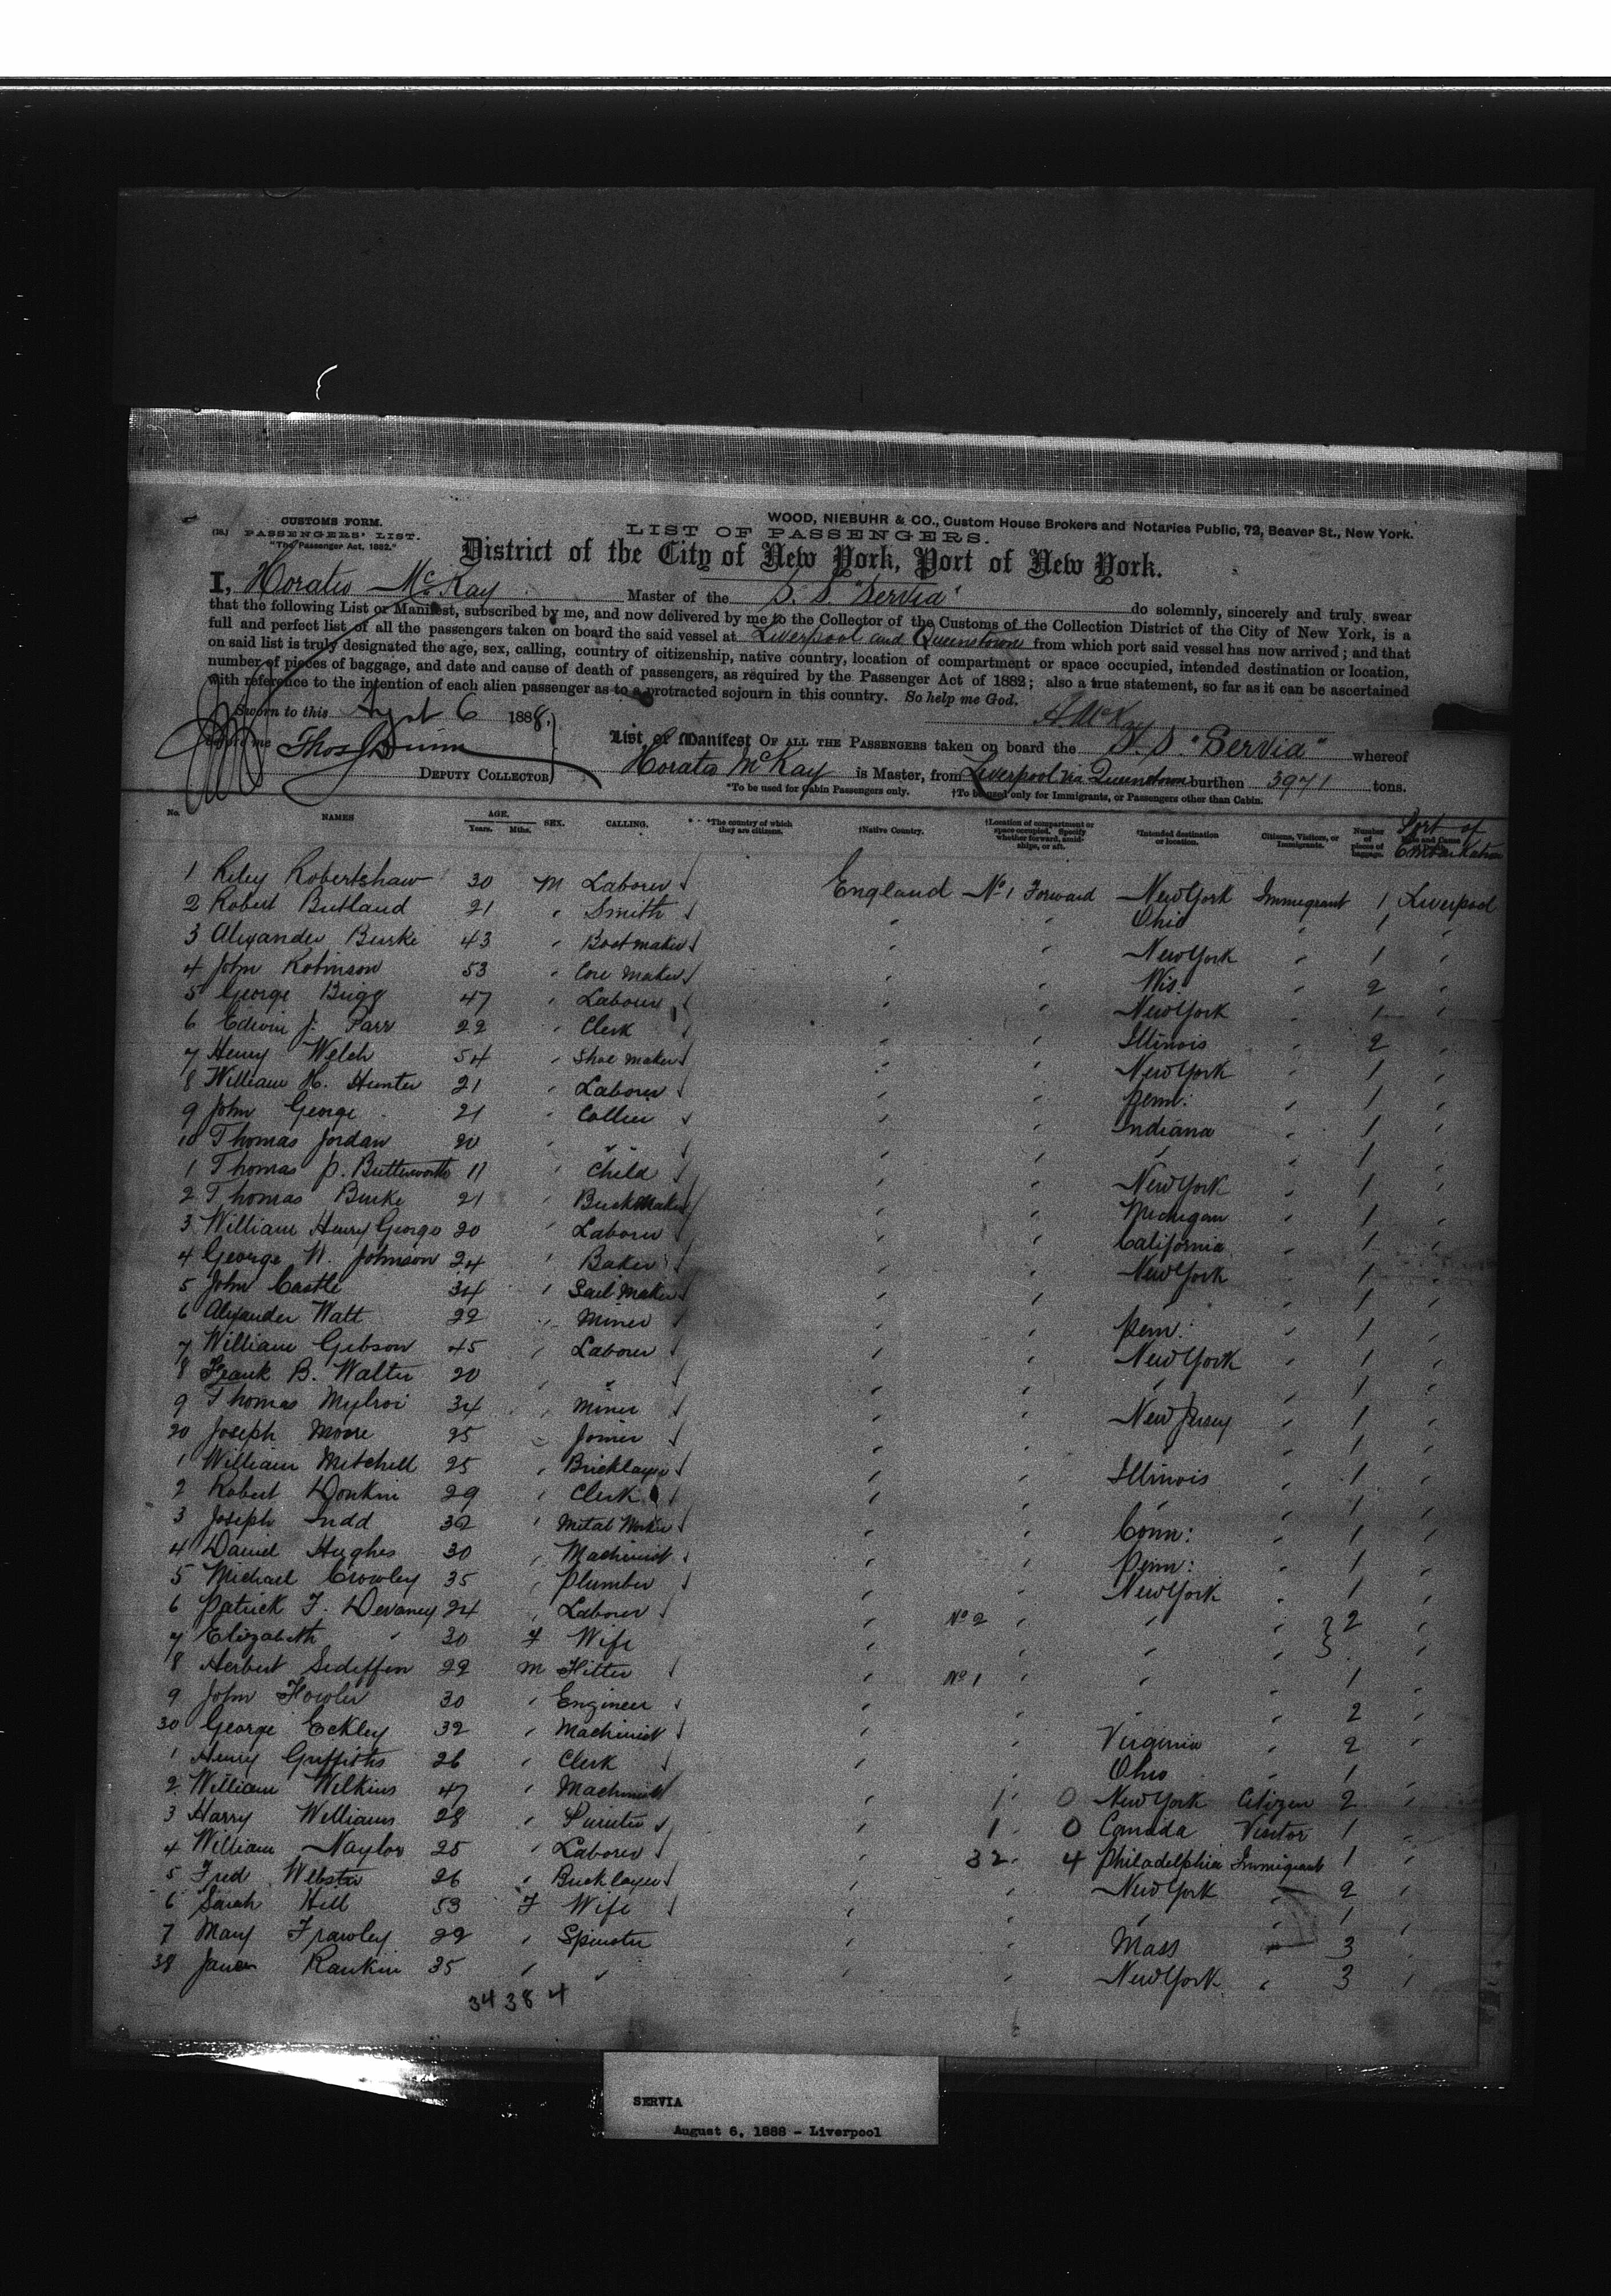 CUSTOMS FORM.
WOOD, NIEBUHR & CO., Custom House Brokers and Notaries Public, 72, Beaver St., New York.
PASSENGERS' LIST.
LIST OF PASSENGERS.
"The Passenger Act, 1882."
District of the City of New York, Port of New York.
I, Horatio McKay Master of the S. S. "Servia" do solemnly, sincerely and truly swear
that the following List or Manifest, subscribed by me, and now delivered by me to the Collector of the Customs of the Collection District of the City of New York, is a
full and perfect list of all the passengers taken on board the said vessel at Liverpool and Queenstown from which port said vessel has now arrived; and that
on said list is truly designated the age, sex, calling, country of citizenship, native country, location of compartment or space occupied, intended destination or location,
number of pieces of baggage, and date and cause of death of passengers, as required by the Passenger Act of 1882; also a true statement, so far as it can be ascertained
with reference to the intention of each alien passenger as to a protracted sojourn in this country. So help me God.
Sworn to this 6 1888.
H McKay
before me Thos Dunn
DEPUTY COLLECTOR
List or Manifest OF ALL THE PASSENGERS taken on board the S. S. "Servia" whereof
Horatio McKay is Master, from Liverpool via Queenstown burthen 3971 tons.
*To be used for Cabin Passengers only. †To be used only for Immigrants, or Passengers other than Cabin.
No. NAMES AGE. Years. Mths. SEX. CALLING. *The country of which they are citizens. †Native Country. †Location of compartment or space occupied. Specify whether forward, amidships, or aft. †Intended destination or location. Citizens, Visitors, or Immigrants. Number of pieces of baggage. Port of Embarkation
1 Riley Robertshaw 30 M Laborer England No 1 Forward New York Immigrant 1 Liverpool
2 Robert Butland 21 " Smith " " Ohio " 1 "
3 Alexander Burke 43 " Bootmaker " " New York " 1 "
4 John Robinson 53 " Core Maker " " Wis. " 2 "
5 George Brigg 47 " Laborer " " New York " 1 "
6 Edwin J. Parr 22 " Clerk " " Illinois " 2 "
7 Henry Welch 54 " Shoe maker " " New York " 1 "
8 William H. Hunter 21 " Laborer " " Penn: " 1 "
9 John George 21 " Collier " " Indiana " 1 "
10 Thomas Jordan 20 " " " " " " 1 "
1 Thomas P. Butterworth 11 " Child " " New York " 1 "
2 Thomas Burke 21 " " " Michigan " 1 "
3 William Henry George 20 " Laborer " " California " 1 "
4 George W. Johnson 24 " Baker " " New York " 1 "
5 John Castle 34 " Sail Maker " " " 1 "
6 Alexander Watt 22 " Miner " " Penn: " 1 "
7 William Gibson 45 " Laborer " " New York " 1 "
8 Frank B. Walter 20 " " " " " " 1 "
9 Thomas Mylroi 34 " Miner " " New Jersey " 1 "
20 Joseph Moore 25 " Joiner " " " 1 "
1 William Mitchell 25 " Bricklayer " " Illinois " 1 "
2 Robert Donkin 29 " Clerk " " " " 1 "
3 Joseph Judd 32 " Metal Worker " " Conn: " 1 "
4 Daniel Hughes 30 " Machinist " " Penn: " 1 "
5 Michael Crowley 35 " Plumber " " New York " 1 "
6 Patrick F. Devaney 24 " Laborer " No 2 " " " 2 "
7 Elizabeth " 30 F Wife " " " " "
8 Herbert 22 M Fitter " No 1 " " " 1 "
9 John Fowler 30 " Engineer " " " " 2 "
30 George Eckley 32 " Machinist " " Virginia " 2 "
1 Henry Griffiths 26 " Clerk " " Ohio " 1 "
2 William Wilkins 47 " Machinist " 1 0 New York Citizen 2 "
3 Harry Williams 28 " " 1 0 Canada Visitor 1 "
4 William Naylor 25 " Laborer " 32 4 Philadelphia Immigrant 1 "
5 Fred Webster 26 " Bricklayer " " New York " 2 "
6 Sarah Hill 53 F Wife " " " " 1 "
7 Mary Frawley 22 " Spinster " " Mass " 3 "
38 Rankin 35 " " " " New York " 3 "
34 38 4
SERVIA
August 6, 1888 - Liverpool